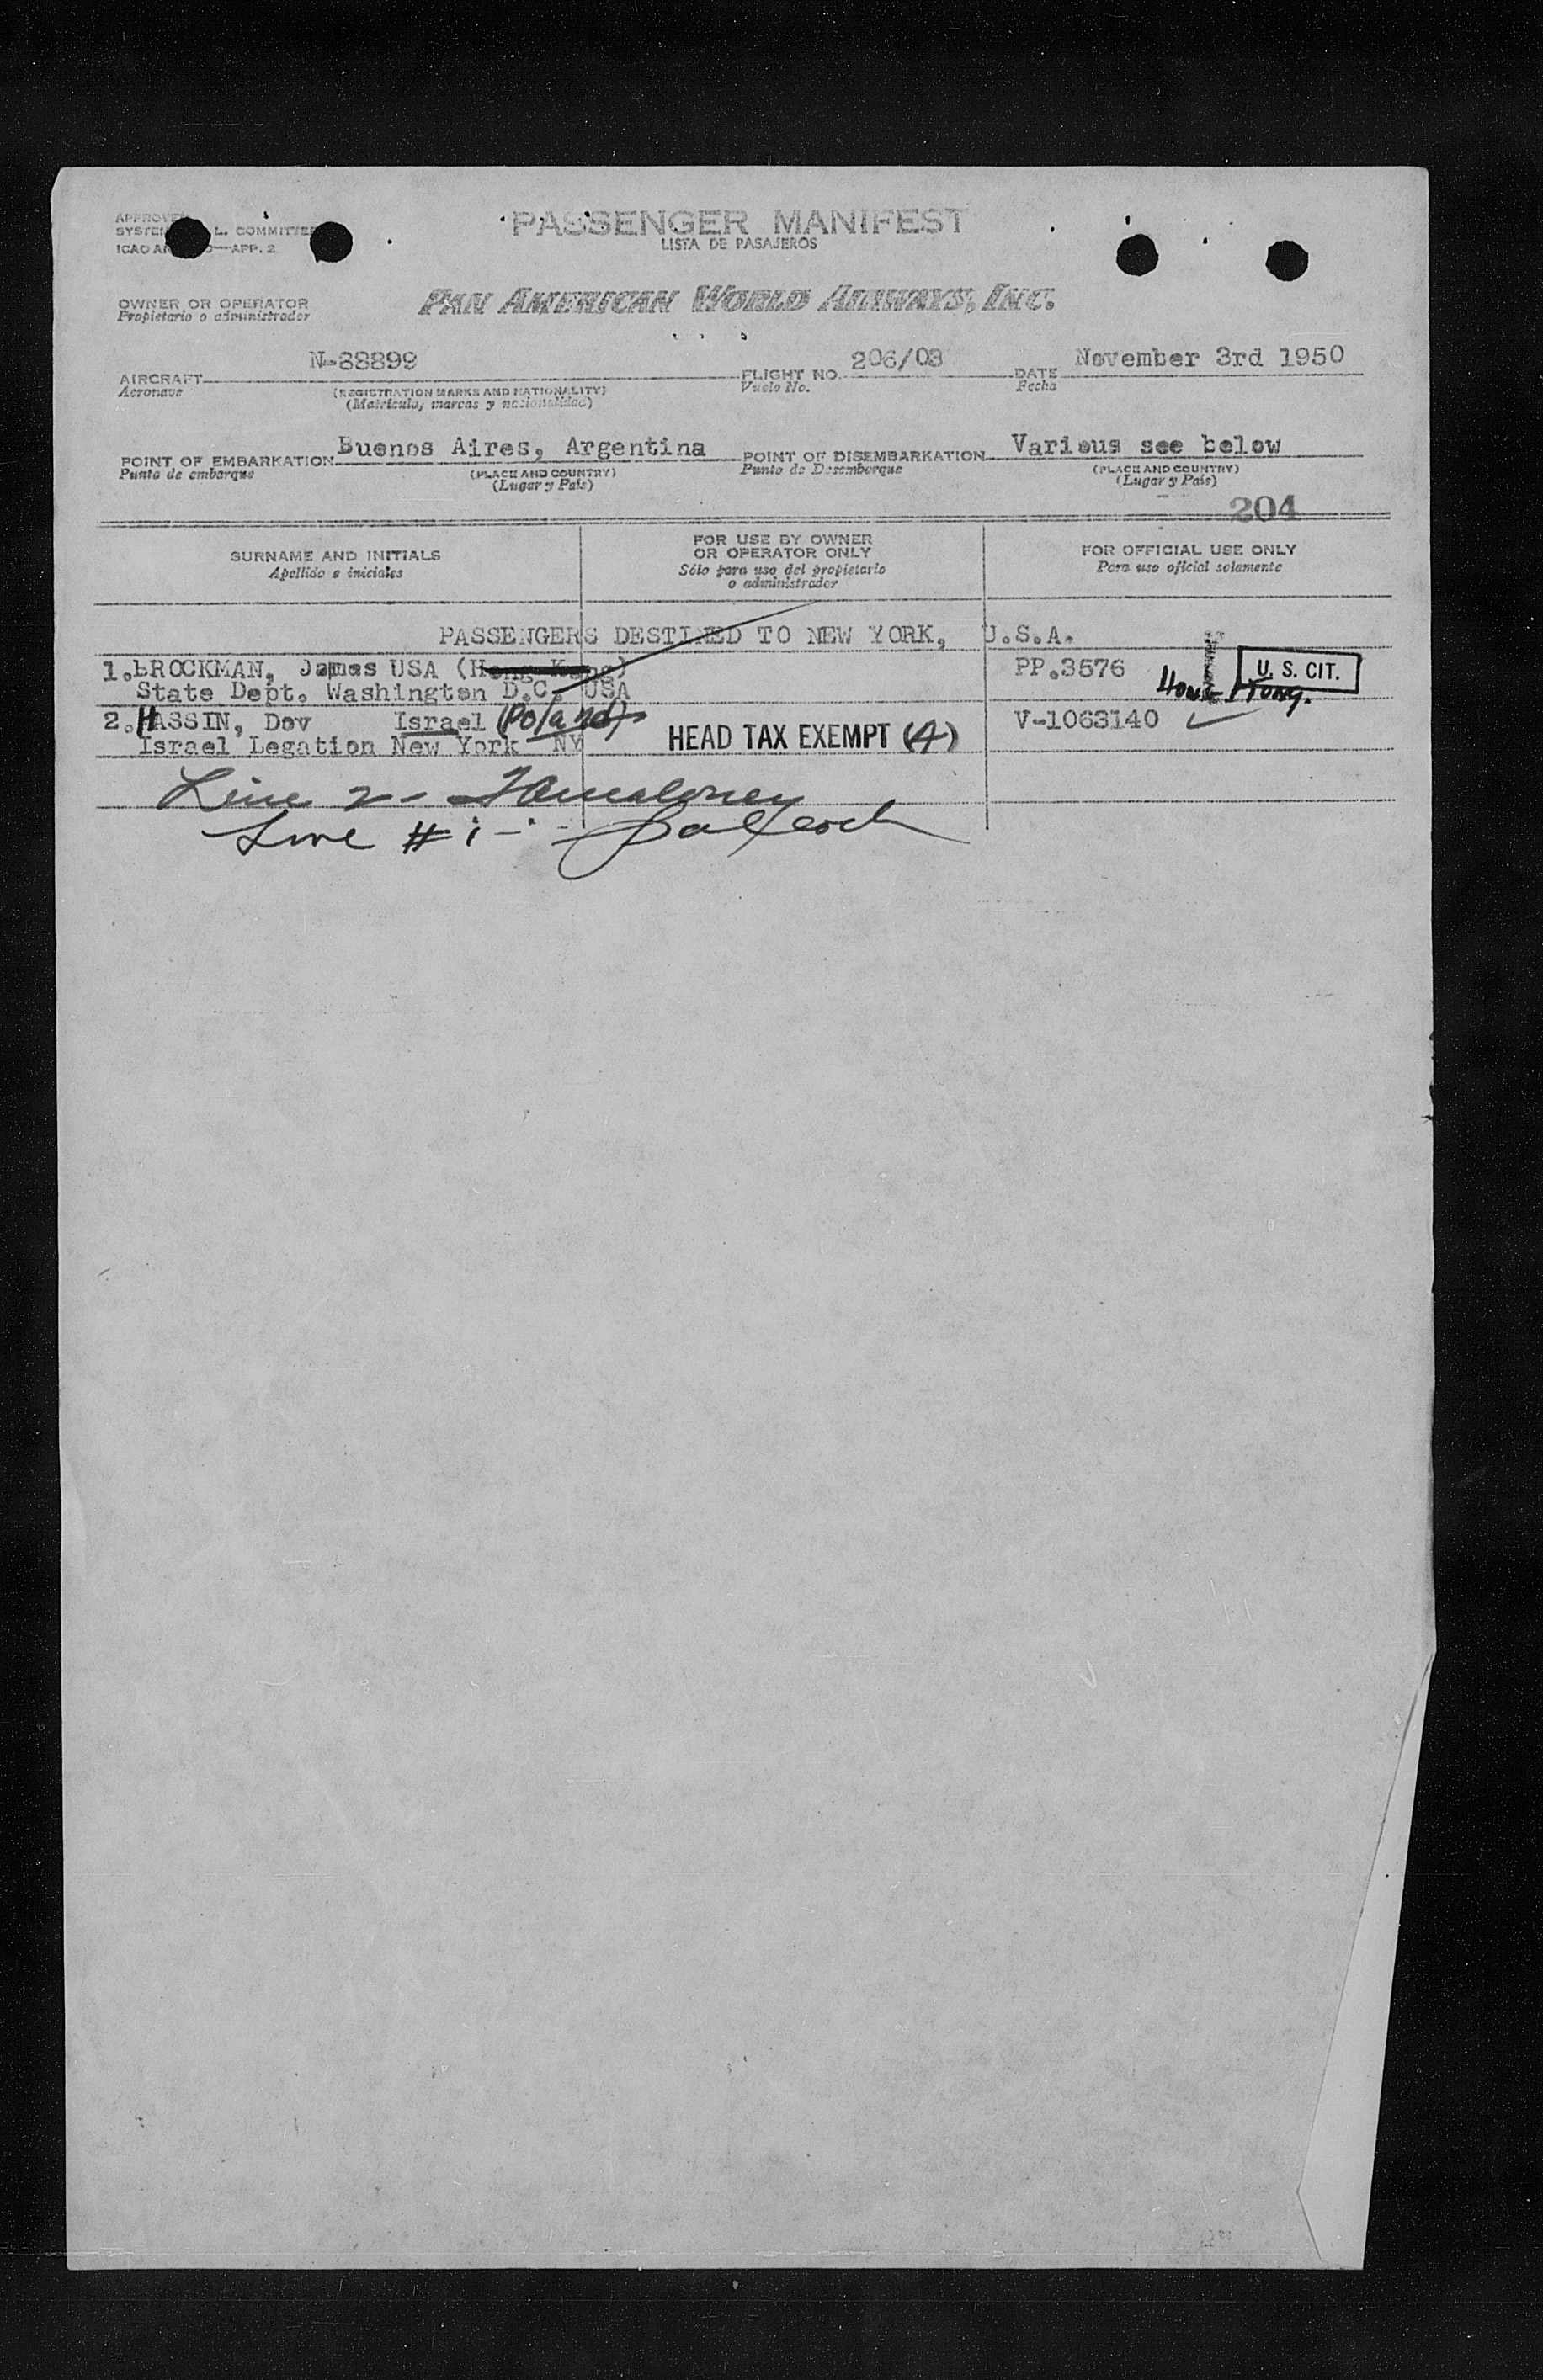 PASSENGER MANIFEST
LISTA DE PASAJEROS
L. COMMITTEE
APP. 2
OWNER OR OPERATOR
Propietario o administrador
PAN AMERICAN WORLD AIRWAYS, INC.
AIRCRAFT N-88899
Aeronave
(REGISTRATION MARKS AND NATIONALITY)
(Matricula, marcas y nacionalidad)
FLIGHT NO. 206/03
Vuelo No.
DATE November 3rd 1950
Fecha
POINT OF EMBARKATION Buenos Aires, Argentina
Punto de embarque
(PLACE AND COUNTRY)
(Lugar y País)
POINT OF DISEMBARKATION Various see below
Punto de Desembarque
(PLACE AND COUNTRY)
(Lugar y País)
204
SURNAME AND INITIALS
Apellido e iniciales
FOR USE BY OWNER
OR OPERATOR ONLY
Sólo para uso del propietario
o administrador
FOR OFFICIAL USE ONLY
Para uso oficial solamente
PASSENGERS DESTINED TO NEW YORK, U.S.A.
1. BROCKMAN, James USA (Hong Kong) PP.3576 Hong Kong. U. S. CIT.
State Dept. Washington D.C. USA
2. HASSIN, Dov Israel (Poland) V-1063140
Israel Legation New York NY HEAD TAX EXEMPT (4)
Line 2-
Line #1-